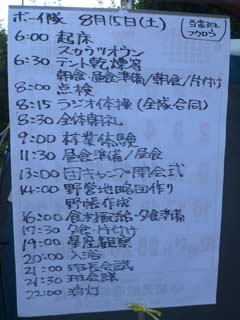 ボーイ隊 8月15日(土)
当番班
フクロウ
6:00 起床
スカウツオウン
6:30 テント乾燥
朝食・昼食準備/朝食/片付け
8:00 点検
8:15 ラジオ体操(全隊合同)
8:30 全体朝礼
9:00 林業体験
11:30 昼食準備/昼食
13:00 団キャンプ開会式
14:00 野営地略図作り
野帳作成
16:00 食材配給・夕食準備
17:30 夕食・片付け
19:00 星座観察
20:00 入浴
21:00 班長会議
21:30 班会議
22:00 消灯